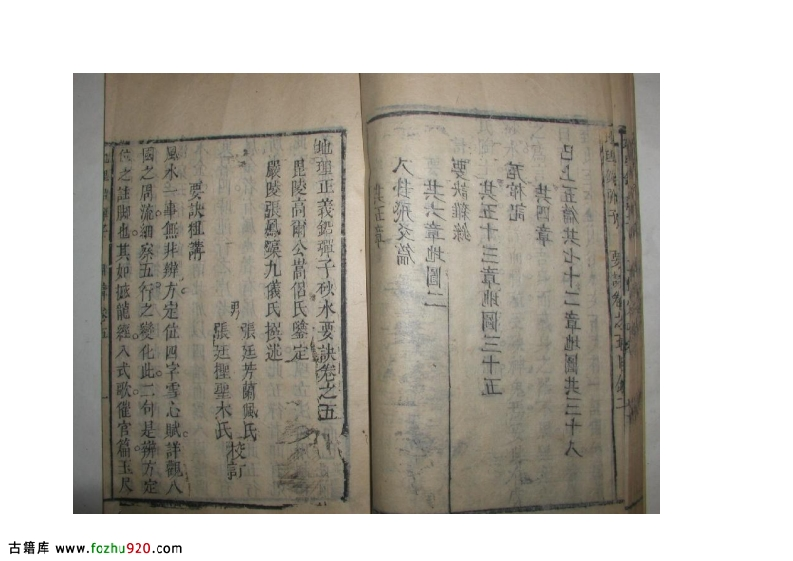 已上五篇共七十二章地圖共二十八
共四章
共五十三章地圖三十五
要訣雜錄
共六章地圖二
八卦飛爻篇
共五章
地理正義鉛彈子砂水要訣卷之五
毘陵高爾公嵩侶氏鑒定
嚴陵張鳳藻九儀氏撰述
男
張廷芳蘭佩氏
張廷揑聖木氏
校訂
要訣祖講
風水一事無非辨方定位四字雪心賦詳觀八
國之周流細察五行之變化此二句是辨方定
位之註脚也其如撼龍經入式歌催官篇玉尺
古籍库 www.fozhu920.com